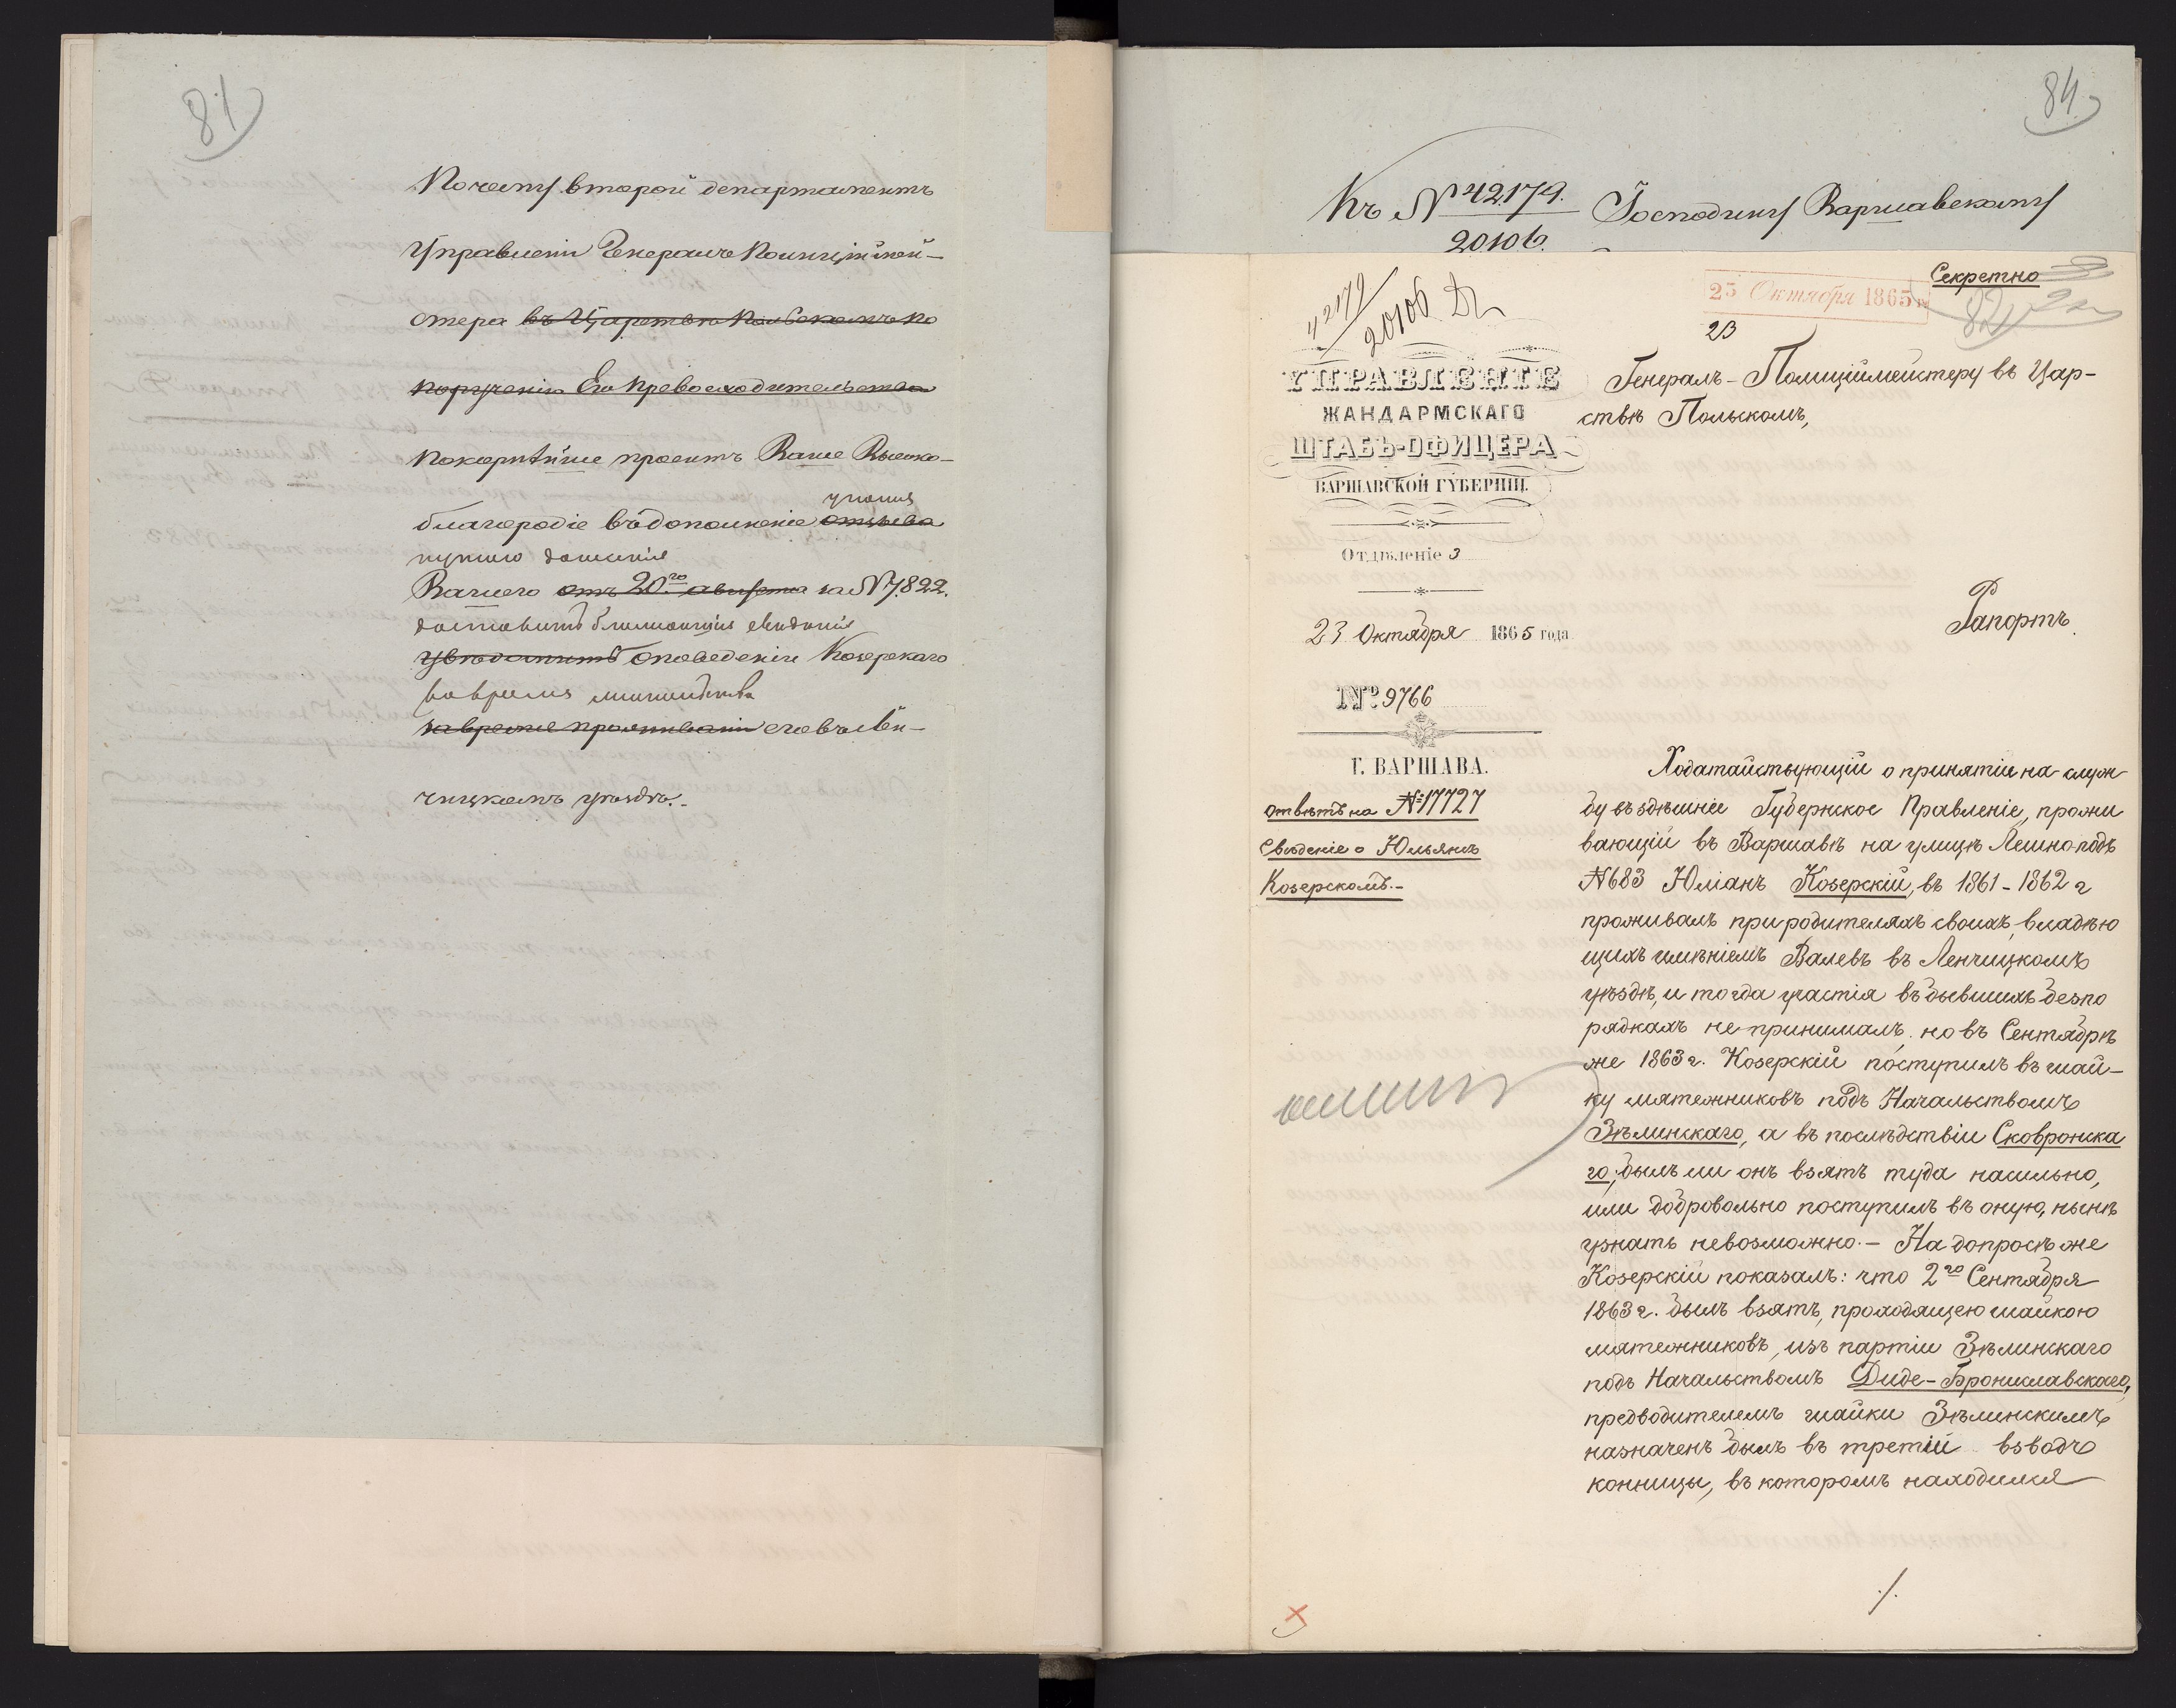 81
Почему второй департаментъ
Управленія Генералъ Полиціймей-
стера въ Царствѣ Польскомъ по
порученію Его Превосходительства
покорнѣйше проситъ Ваше Высоко-
благородіе въ дополненіе отзыва
Вашего отъ 20го августа за №7822.
доставить свѣденія
увѣдомить о поведеніи Козерскаго
во время
за время проживанія его въ Лен-
чицкомъ уѣздѣ.
84
Къ № 42179.
20106.
Господину Варшавскому
42179
20106
Секретно
25 Октября 1865
23
82
УПРАВЛЕНІЕ
ЖАНДАРМСКАГО
ШТАБЪ-ОФИЦЕРА
ВАРШАВСКОЙ ГУБЕРНІИ.
Отдѣленіе 3
23 Октября 1865 года
№ 9766
Г. ВАРШАВА.
Отвѣтъ на №17727
Свѣденіе о Юльянѣ
Козерскомъ.-
Генералъ-Полиціймейстеру въ Цар-
ствѣ Польскомъ,
Рапортъ.
Ходатайствующій о принятіи на служ-
бу въ здѣшнее Губернское Правленіе, прожи
вающій въ Варшавѣ на улицѣ Лешно подъ
№683 Юліанъ Козерскій, въ 1861-1862 г
проживалъ при родителяхъ своихъ, владѣю
щихъ имѣніемъ Валевъ въ Ленчицкомъ
уѣздѣ, и тогда участія въ бывшихъ безпо
рядкахъ не принималъ, но въ Сентябрѣ
же 1863 г. Козерскій поступилъ въ шай-
ку мятежниковъ подъ Начальствомъ
Зѣлинскаго, а въ послѣдствіи Сковронска
го; былъ ли онъ взятъ туда насильно,
или добровольно поступилъ въ оную, нынѣ
узнать невозможно.- На допросѣ же
Козерскій показалъ: что 2го Сентября
1863 г. былъ взятъ, проходящею шайкою
мятежниковъ, изъ партіи Зѣлинскаго
подъ Начальствомъ Диде-Брониславскаго,
предводителемъ шайки Зѣлинскимъ
назначенъ былъ въ третій взводъ
конницы, въ которомъ находился
./.